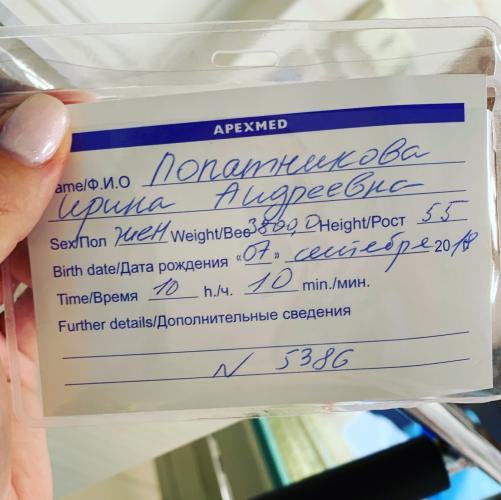 APEXMED
ame/Ф.И.О Лопатникова
Ирина Андреевна
Sex/Пол жен Weight/Вес 3860,0 Height/Рост 55
Birth date/Дата рождения «07» сентября 2018
Time/Время 10 h./ч. 10 min./мин.
Further details/Дополнительные сведения
N 5386